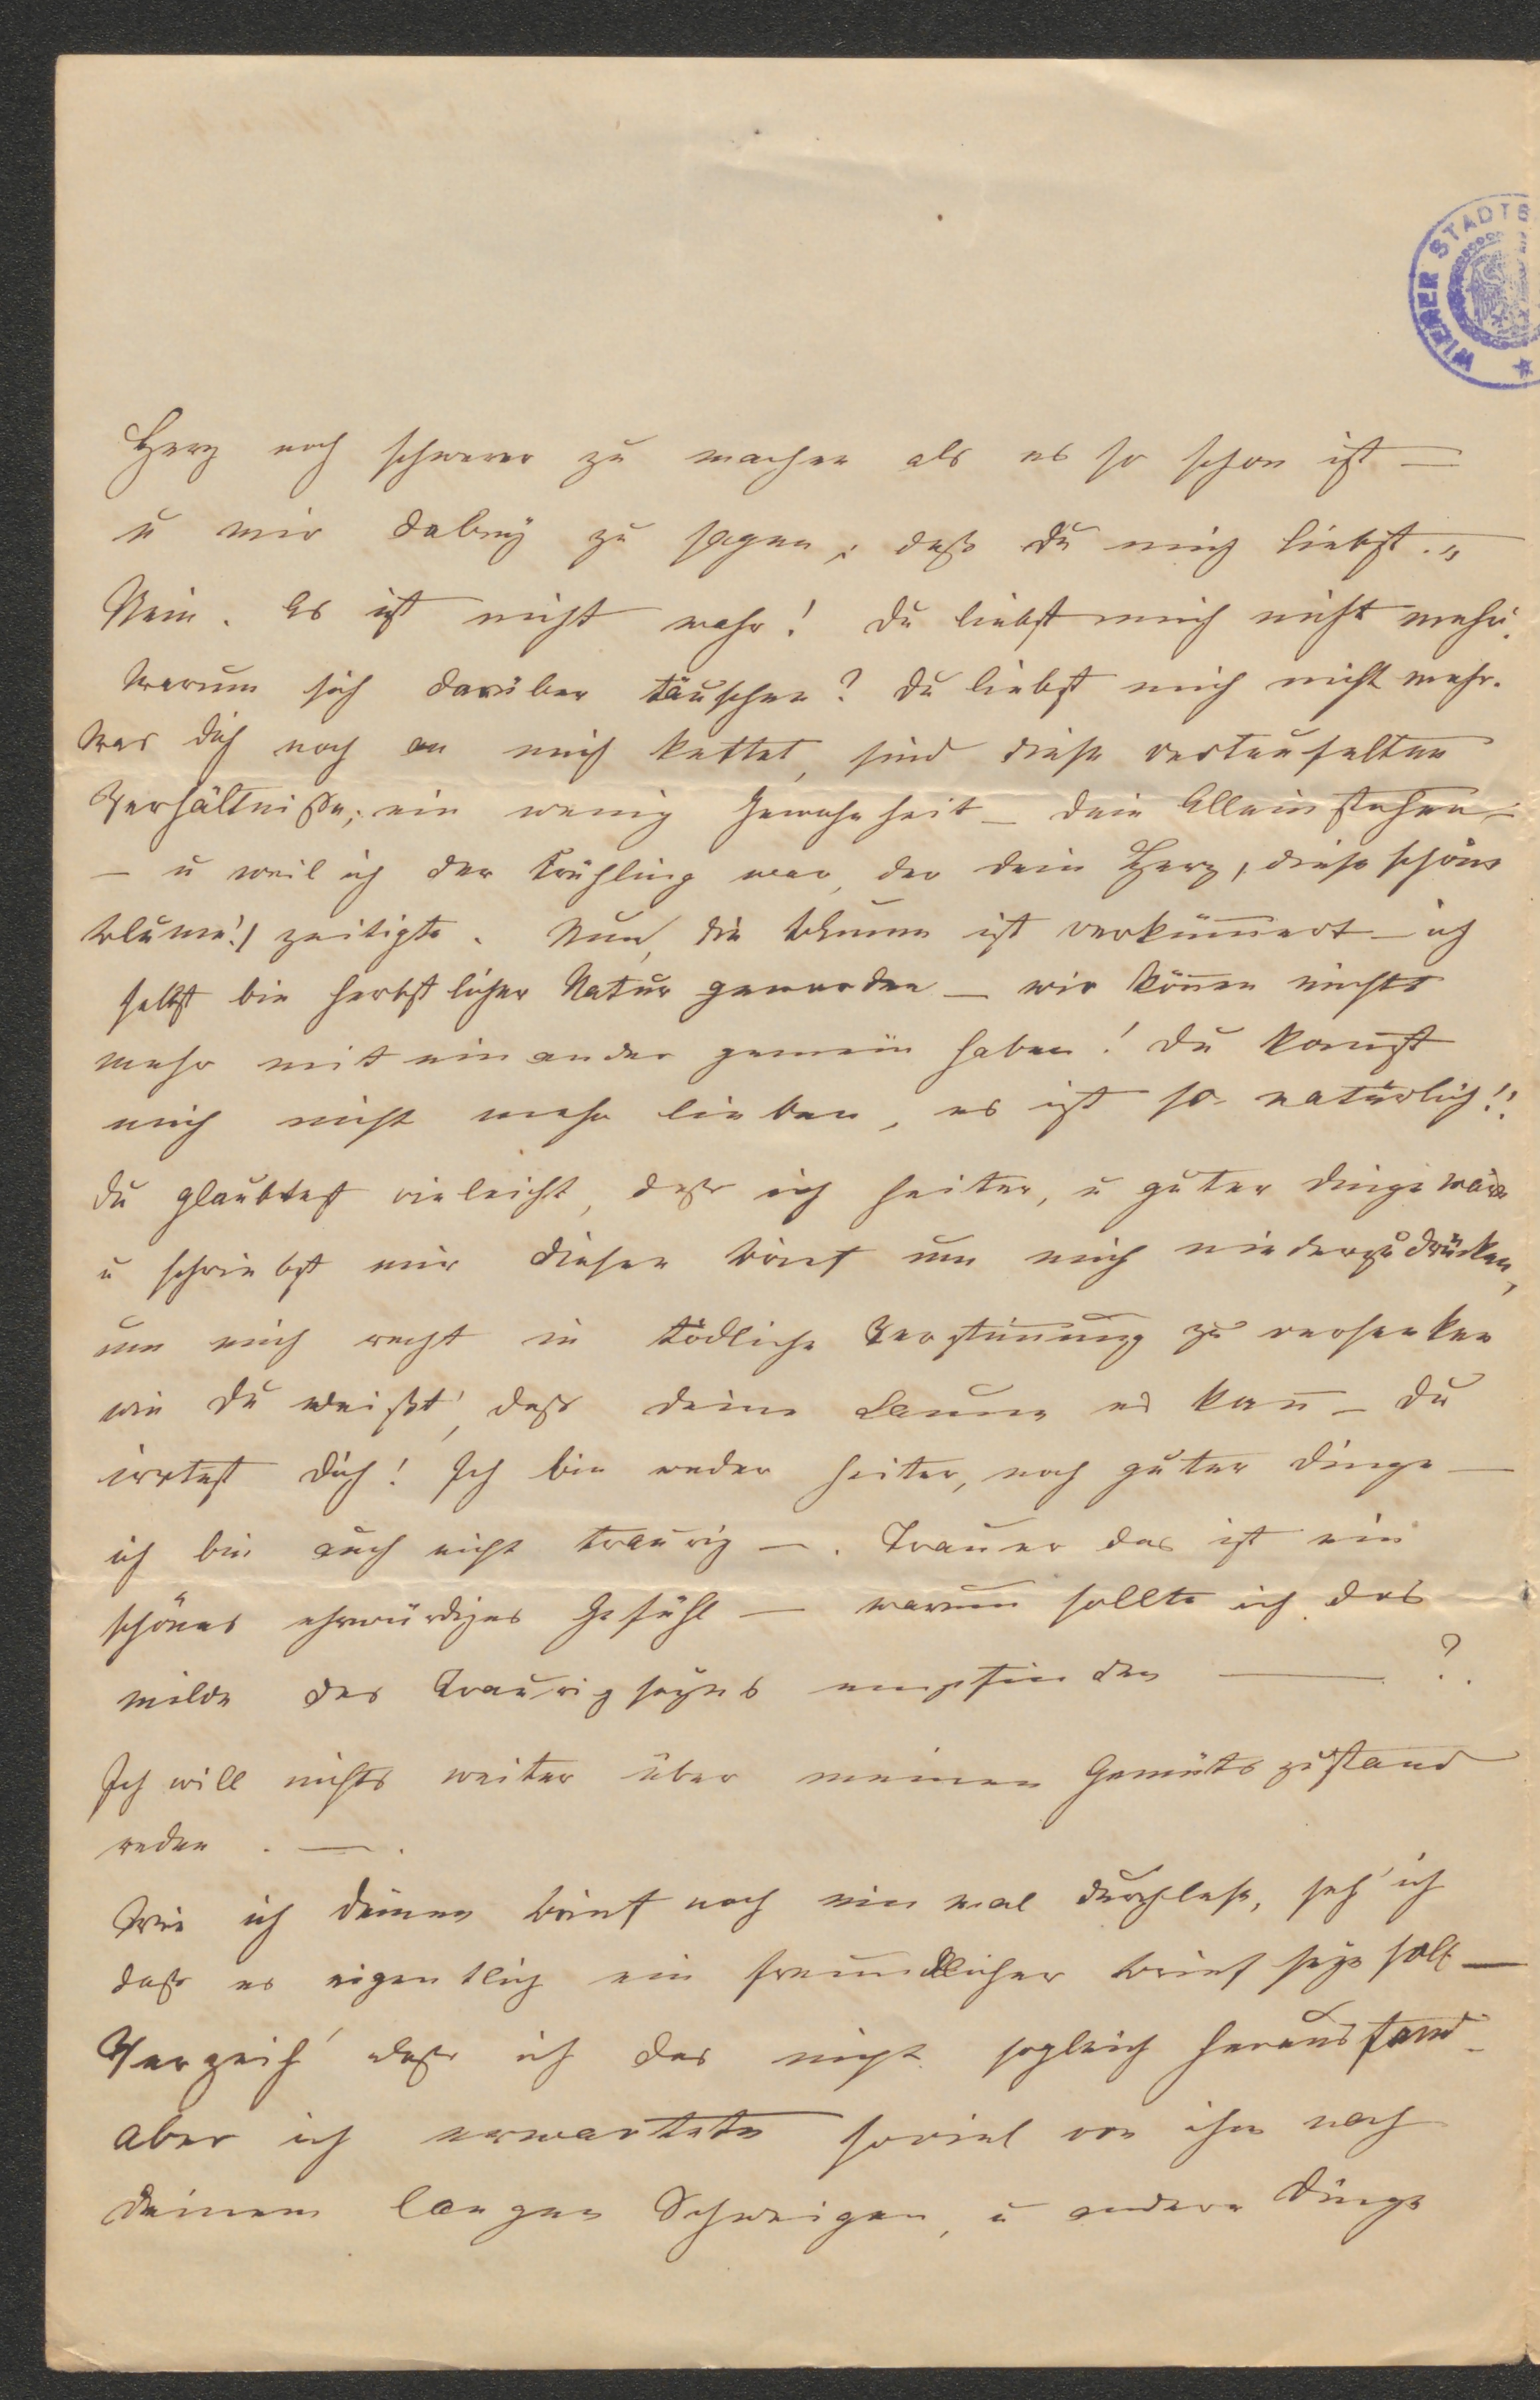 WIENER STADTB
Herz noch schwerer zu machen als es so schon ist —
u mir dabeÿ zu sagen, daß du mich liebst.„
Nein. Es ist nicht wahr! Du liebst mich nicht mehr.
Warum sich darüber täuschen? Du liebst mich nicht mehr.
Was dich noch an mich kettet, sind diese verteufelten
Verhältniße; ein wenig Gewohnheit — dein Alleinstehen —
— u weil ich der Frühling war, der dein Herz, diese schöne
Blume!/ zeitigte. Nun, die Blume ist verkümmert — ich
selbst bin herbstlicher Natur geworden — wir können nichts
mehr miteinander gemein haben! Du kannst
mich nicht mehr lieben, es ist so natürlich!!
Du glaubtest vieleicht, daß ich heiter, u guter Dinge wäre
u schriebst mir diesen Brief um mich niederzudrücken,
um mich recht in tödliche Verstimmung zu versenken
wie du weißt', daß deine Laune es kann — Du
irrtest dich! Ich bin weder heiter, noch guter Dinge —
ich bin auch nicht traurig —. Trauer das ist ein
schönes ehrwürdiges Gefühl — warum sollte ich das
milde des Traurigseÿns empfinden — ?
Ich will nichts weiter über meinen Gemütszustand
reden . — .
Wie ich deinen Brief noch ein mal durchlese, seh' ich
daß es eigentlich ein freundlicher Brief seÿn soll —
Verzeih' daß ich das nicht sogleich herausfand —
aber ich erwartete soviel von ihm nach
deinem langen Schweigen, u andere Dinge